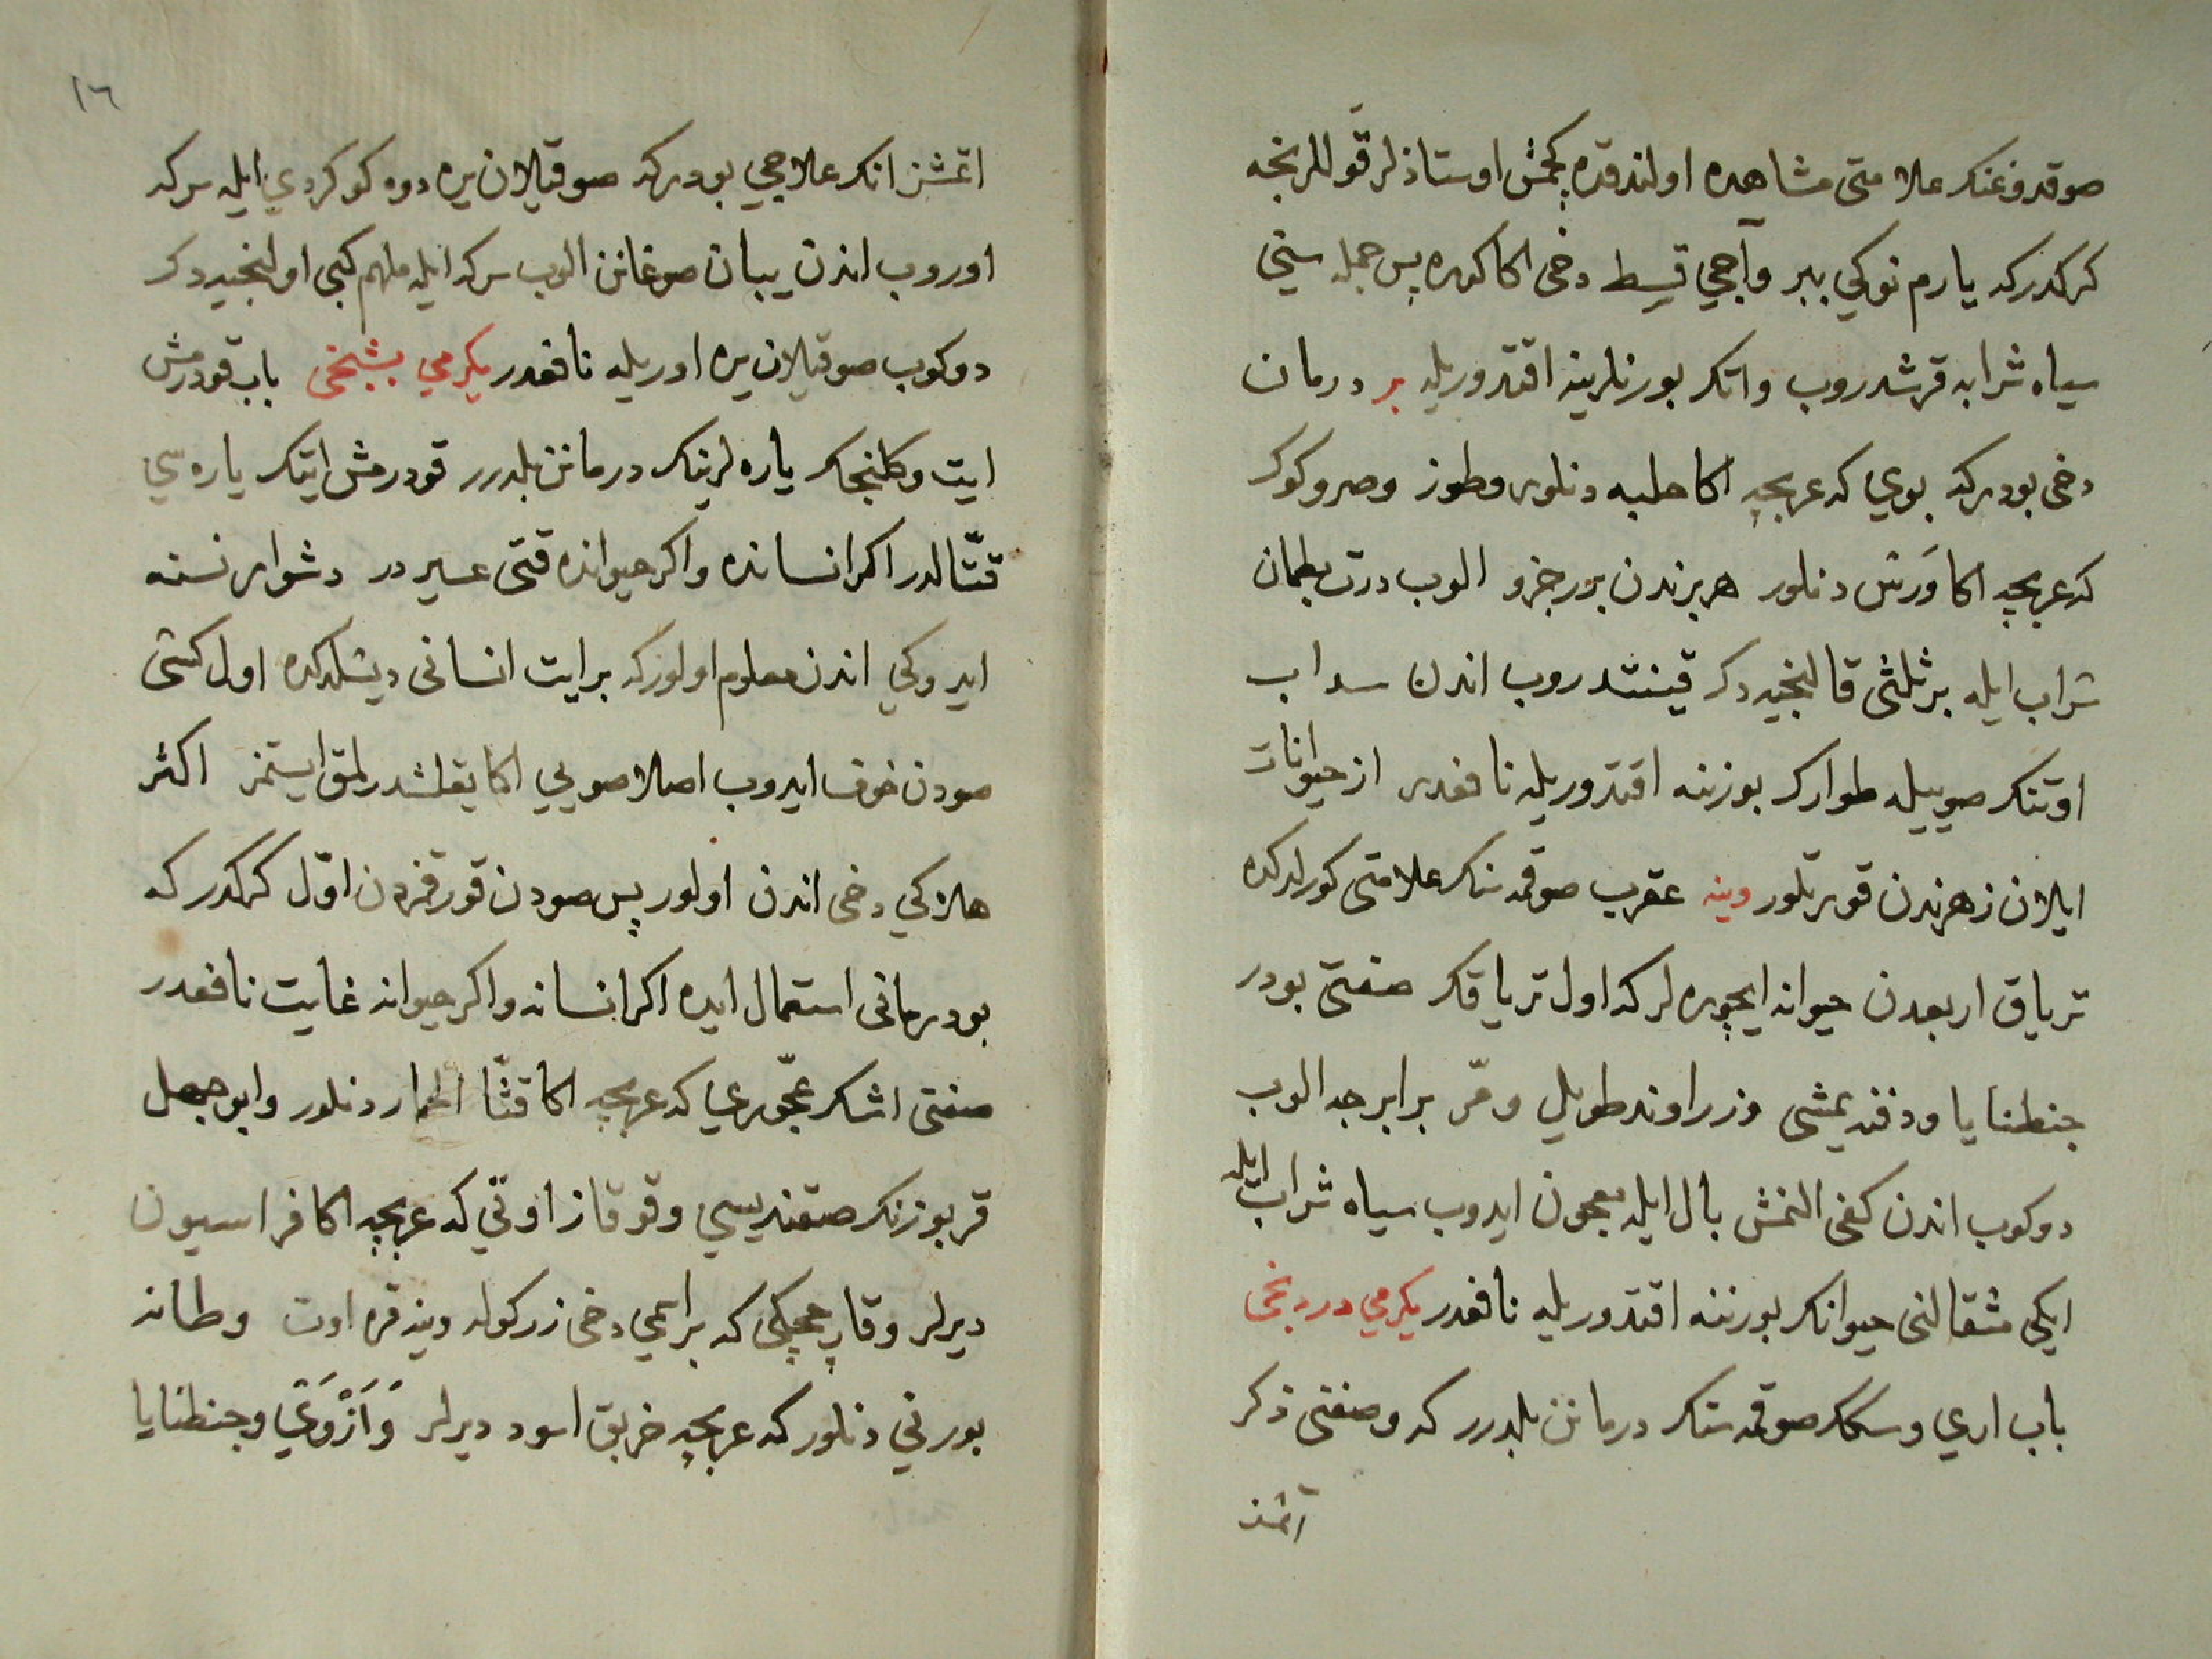 صوقدوغنك علامتى مشاهده اولندقده كچمش اوستاذلر قوللرنجه
كركدركه يارم نوكي ببر وآجي قسط دخى اكا كوره پس جمله سيني
سياه شرابه قرشدروب واتك بورنلرينه اقتدوريله بر درمان
دخى بودركه بوي كه عربجه اكا حلبه دنلور وطوز وصرو كوكر
كه عربجه اكا وَرَس دنلور هر برندن برر جزو الوب درت بطمان
شراب ايله بر ثلثى قالنجيه دكر قينتدروب اندن سداب
اوتنك صوييله طوارك بورننه اقتدوريله نافعدر از حيوانات
ايلان زهرندن قورتلور وينه عقرب صوقمه‌سنك علامتى كورلدكده
ترياق اربعدن حيوانه ايچوره لر كه اول ترياقك صفتى بودر
جنطنايا ودفنه يمشى وزراوند طويل ومرّ برابرجه الوب
دوكوب اندن كفى النمش بال ايله معجون ايدوب سياه شراب ايله
ايكى مثقالنى حيوانك بورننه اقتدوريله نافعدر يكرمي دردنجى
باب اري وسكك صوقمه‌سنك درماننى بلدرر كه وصفتى ذكر
اتمشز
١٦
اتمشز انك علاجي بودركه صوقيلان يره دوه كوكردي ايله سركه
اوروب اندن يبان صوغانن الوب سركه ايله ملهم كبى اولنجيه دكر
دوكوب صوقيلان يره اوريله نافعدر يكرمي بشنجى باب قودرمش
ايت وكلنجك ياره لرينك درماننى بلدرر قودرمش ايتك ياره سي
قتّالدر اكر انسانده واكر حيوانده قتى عسيردر دشوار نسنه
ايدوكي اندن معلوم اولوركه بر ايت انسانى ديشلدكده اول كشى
صودن خوف ايدوب اصلا صويي اكا يقلشدرلمق ايستمز اكثر
هلاكي دخى اندن اولور پس صودن قورقمزدن اوّل كركدركه
بو درمانى استعمال ايده اكر انسانه واكر حيوانه غايت نافعدر
صفتى اشك عجّوري كه عربجه اكا قثّا الحمار دنلور وابو جهل
قربوزنك صقنديسي وقوقاز اوتي كه عربجه اكا فراسيون
ديرلر وقاپ چچكى كه براعمي دخى زركوله وينه قره اوت وطانه
بورني دنلور كه عربجه خربق اسود ديرلر وَاَنْزوَتي وجنطنايا